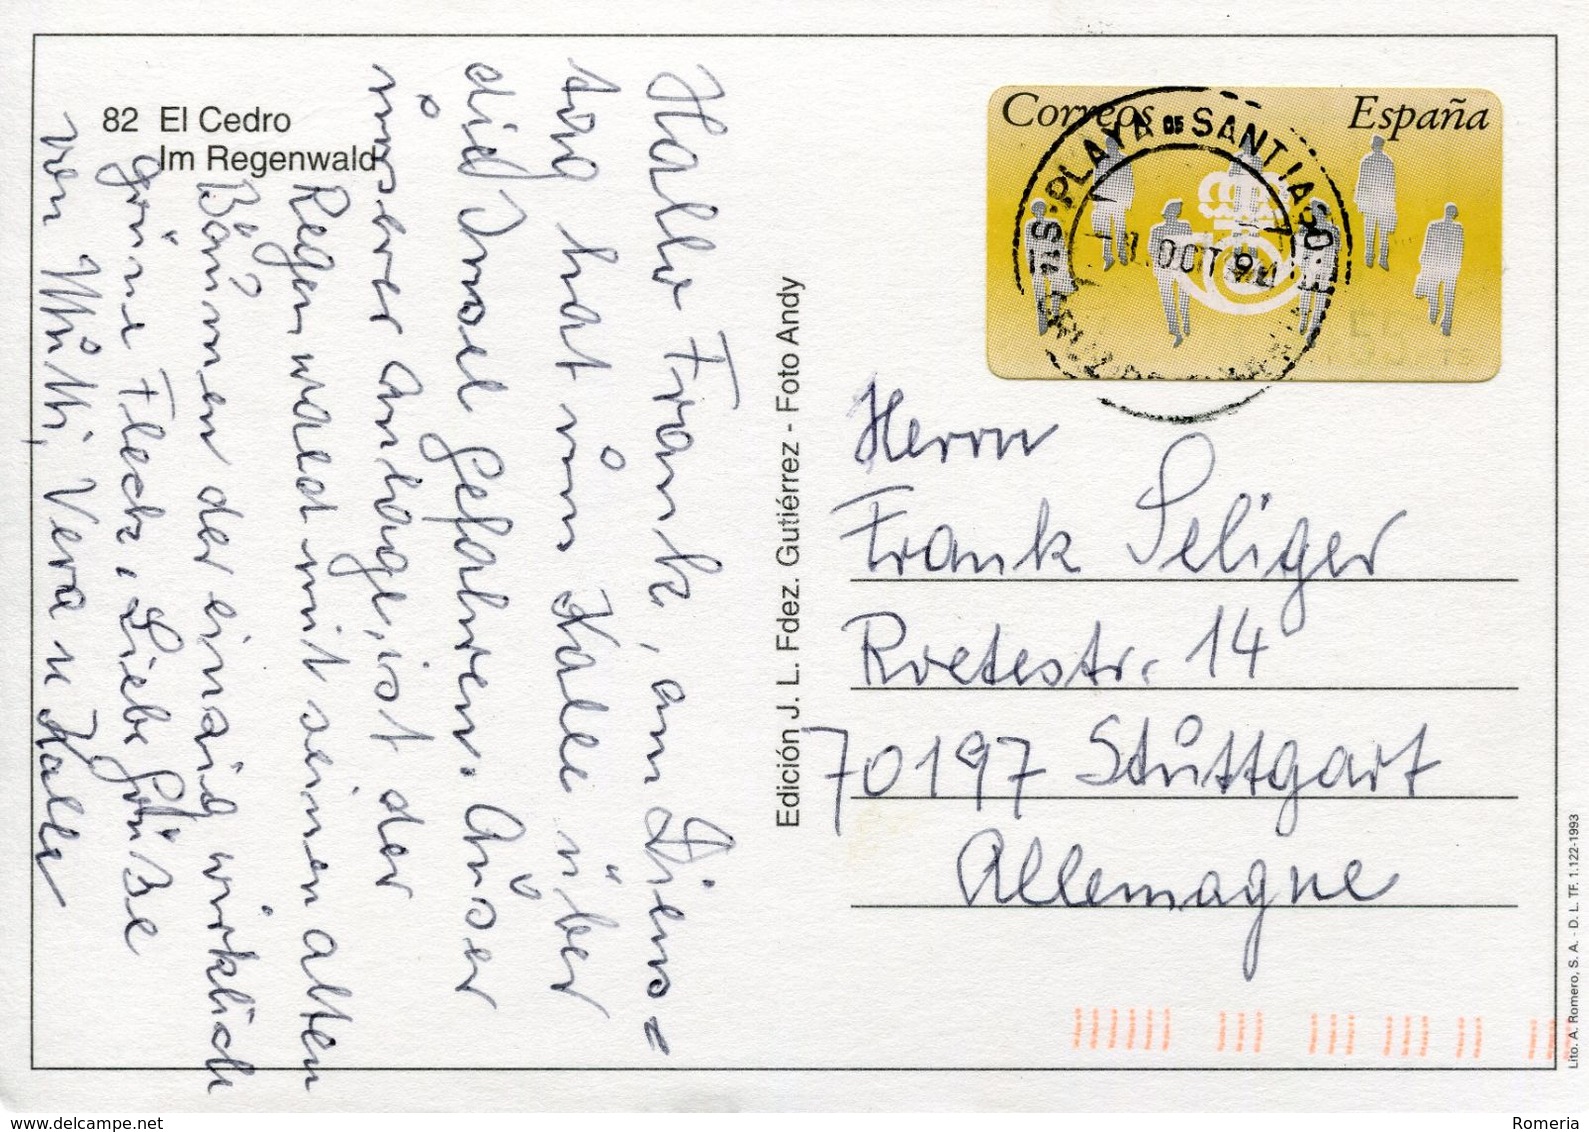 82 El Cedro
Im Regenwald
Hallo Frank, am Diens=
tag hat uns Kalle über
die Insel gefahren. Auser
unserer Anlage, ist der
Regenwald mit seinen alten
Bäumen der einzig wirklich
grüne Fleck. Liebe Grüße
von Mutti, Vera u Kalle
Edición J. L. Fdez. Gutiérrez - Foto Andy
Correos España
PLAYA DE SANTIAGO
OCT 94
Herrn
Frank Seliger
Roetestr. 14
70197 Stuttgart
Allemagne
Lito. A. Romero, S. A. - D. L. TF. 1.122-1993
delcampe.net
Romeria